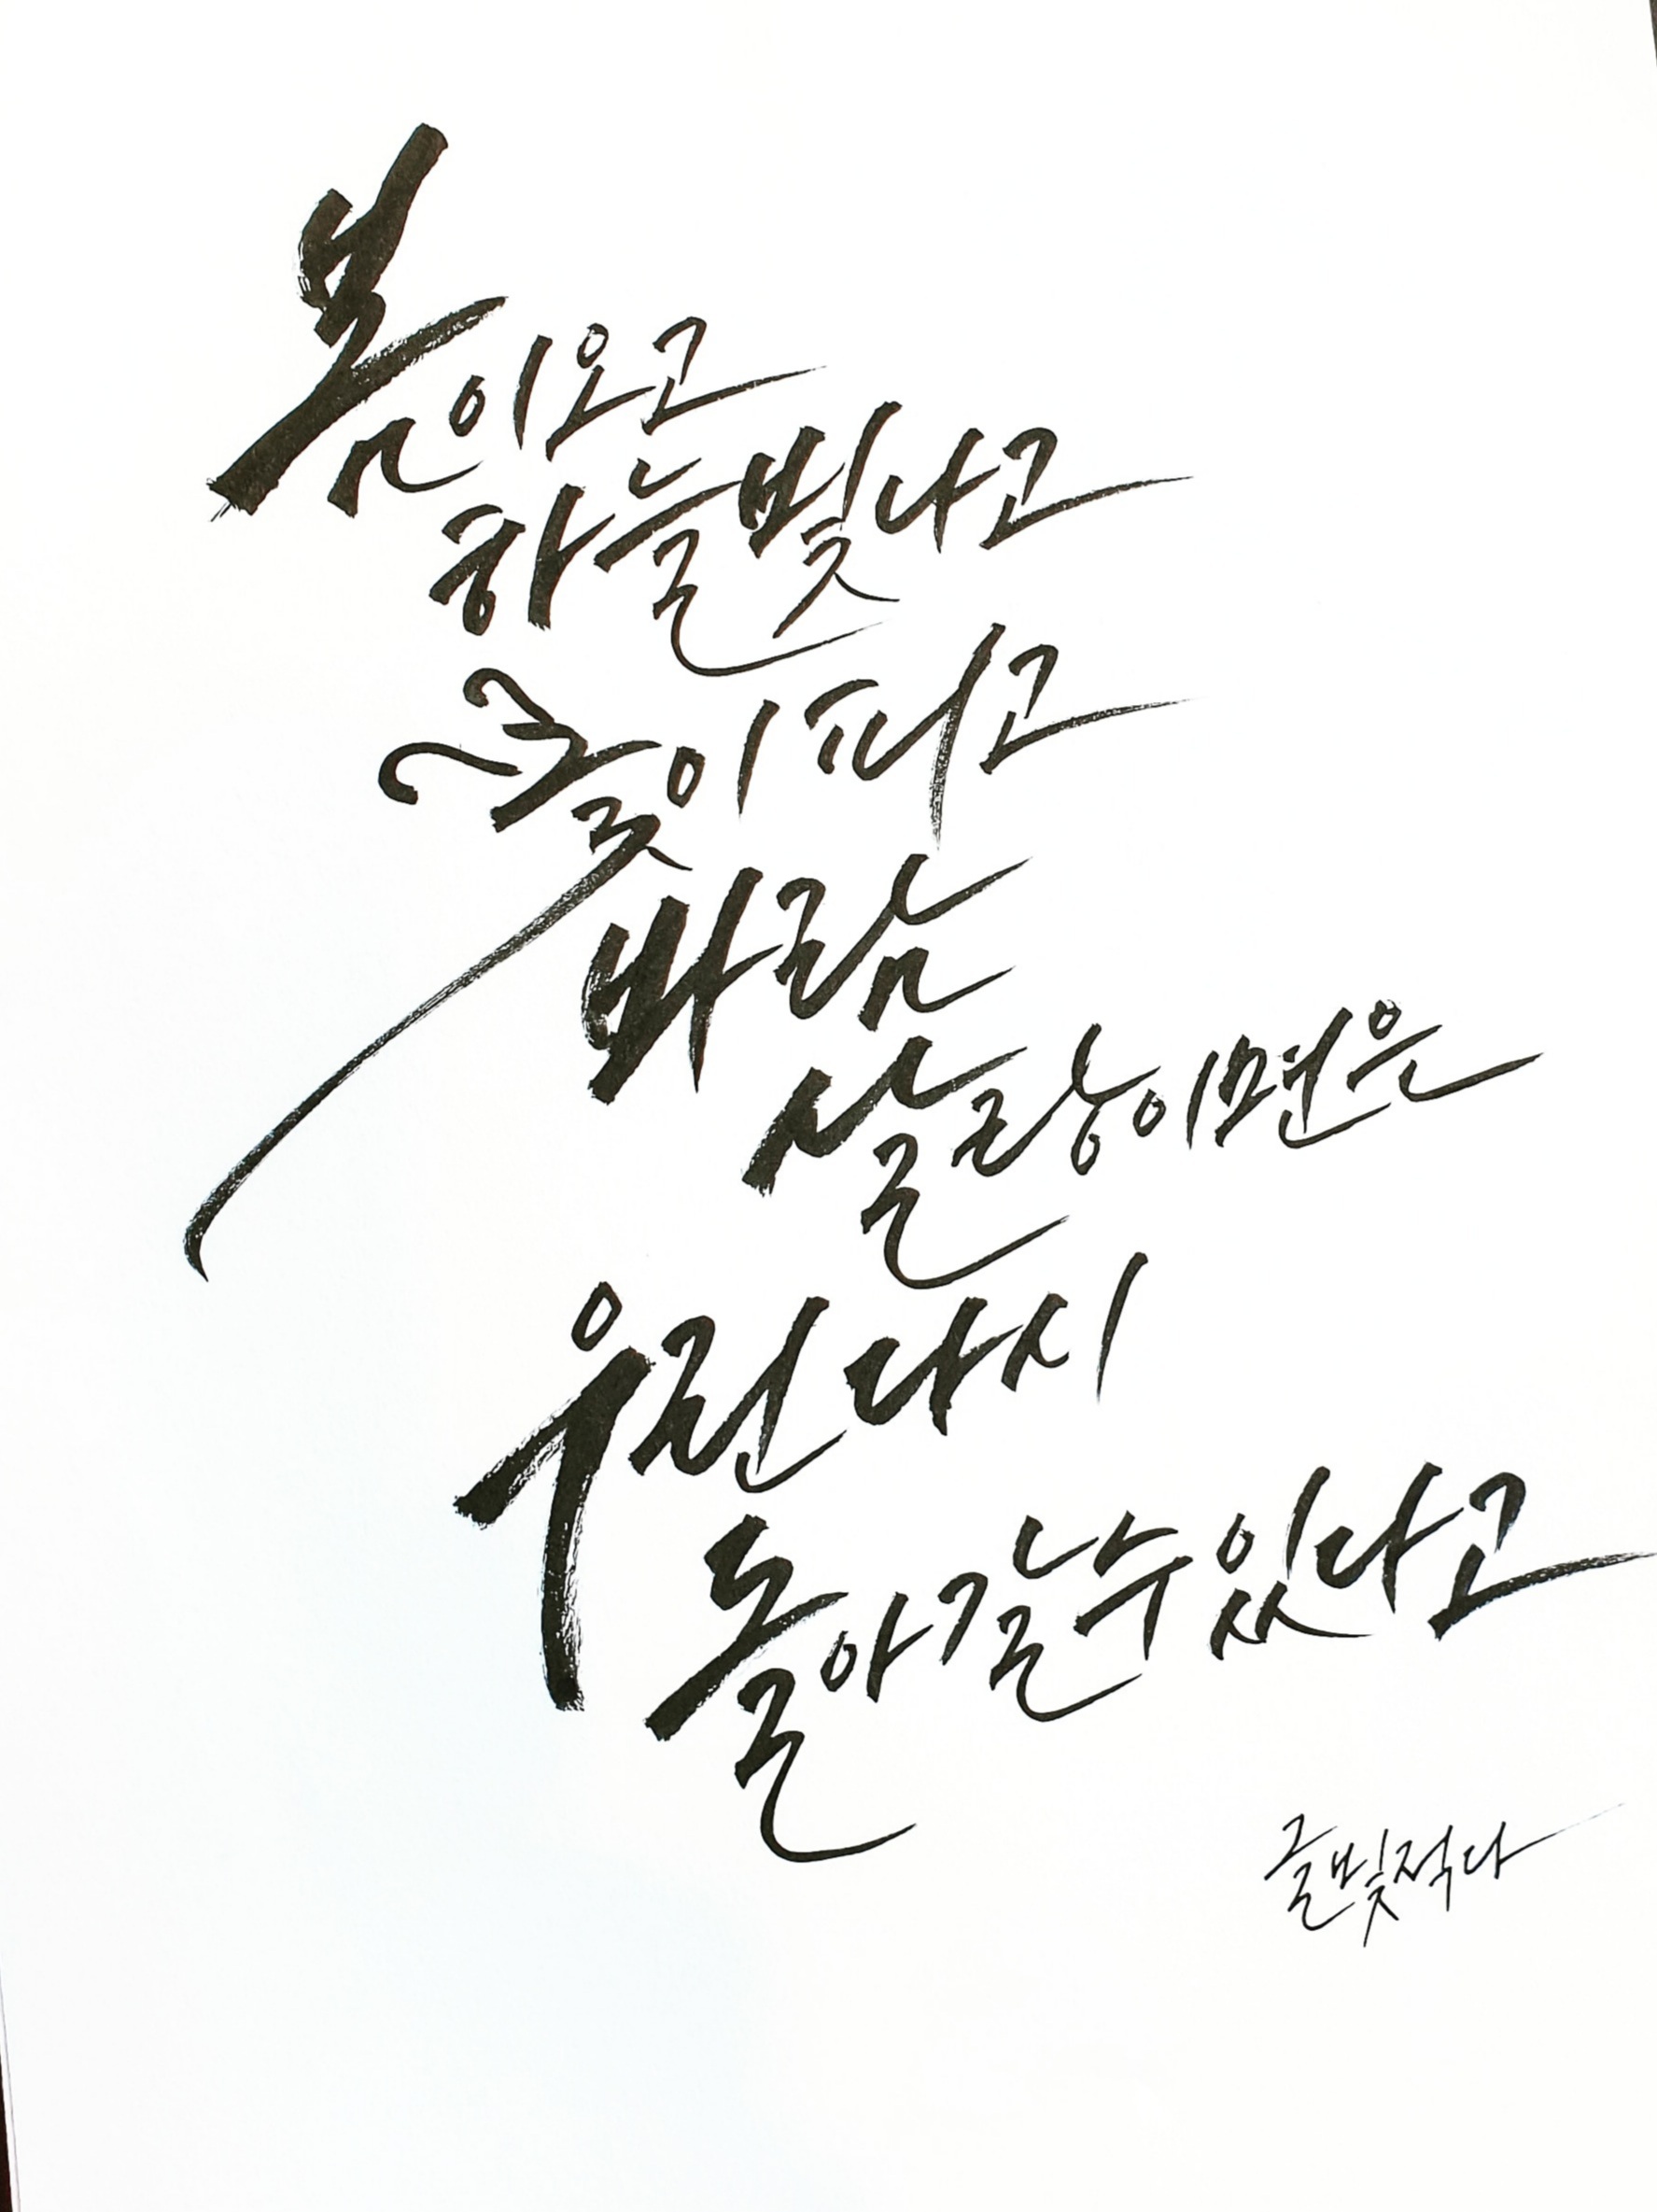 봄이오고
하늘빛나고
꽃이피고
바람
살랑이면은
우린다시
돌아갈수있다고
글빛적다